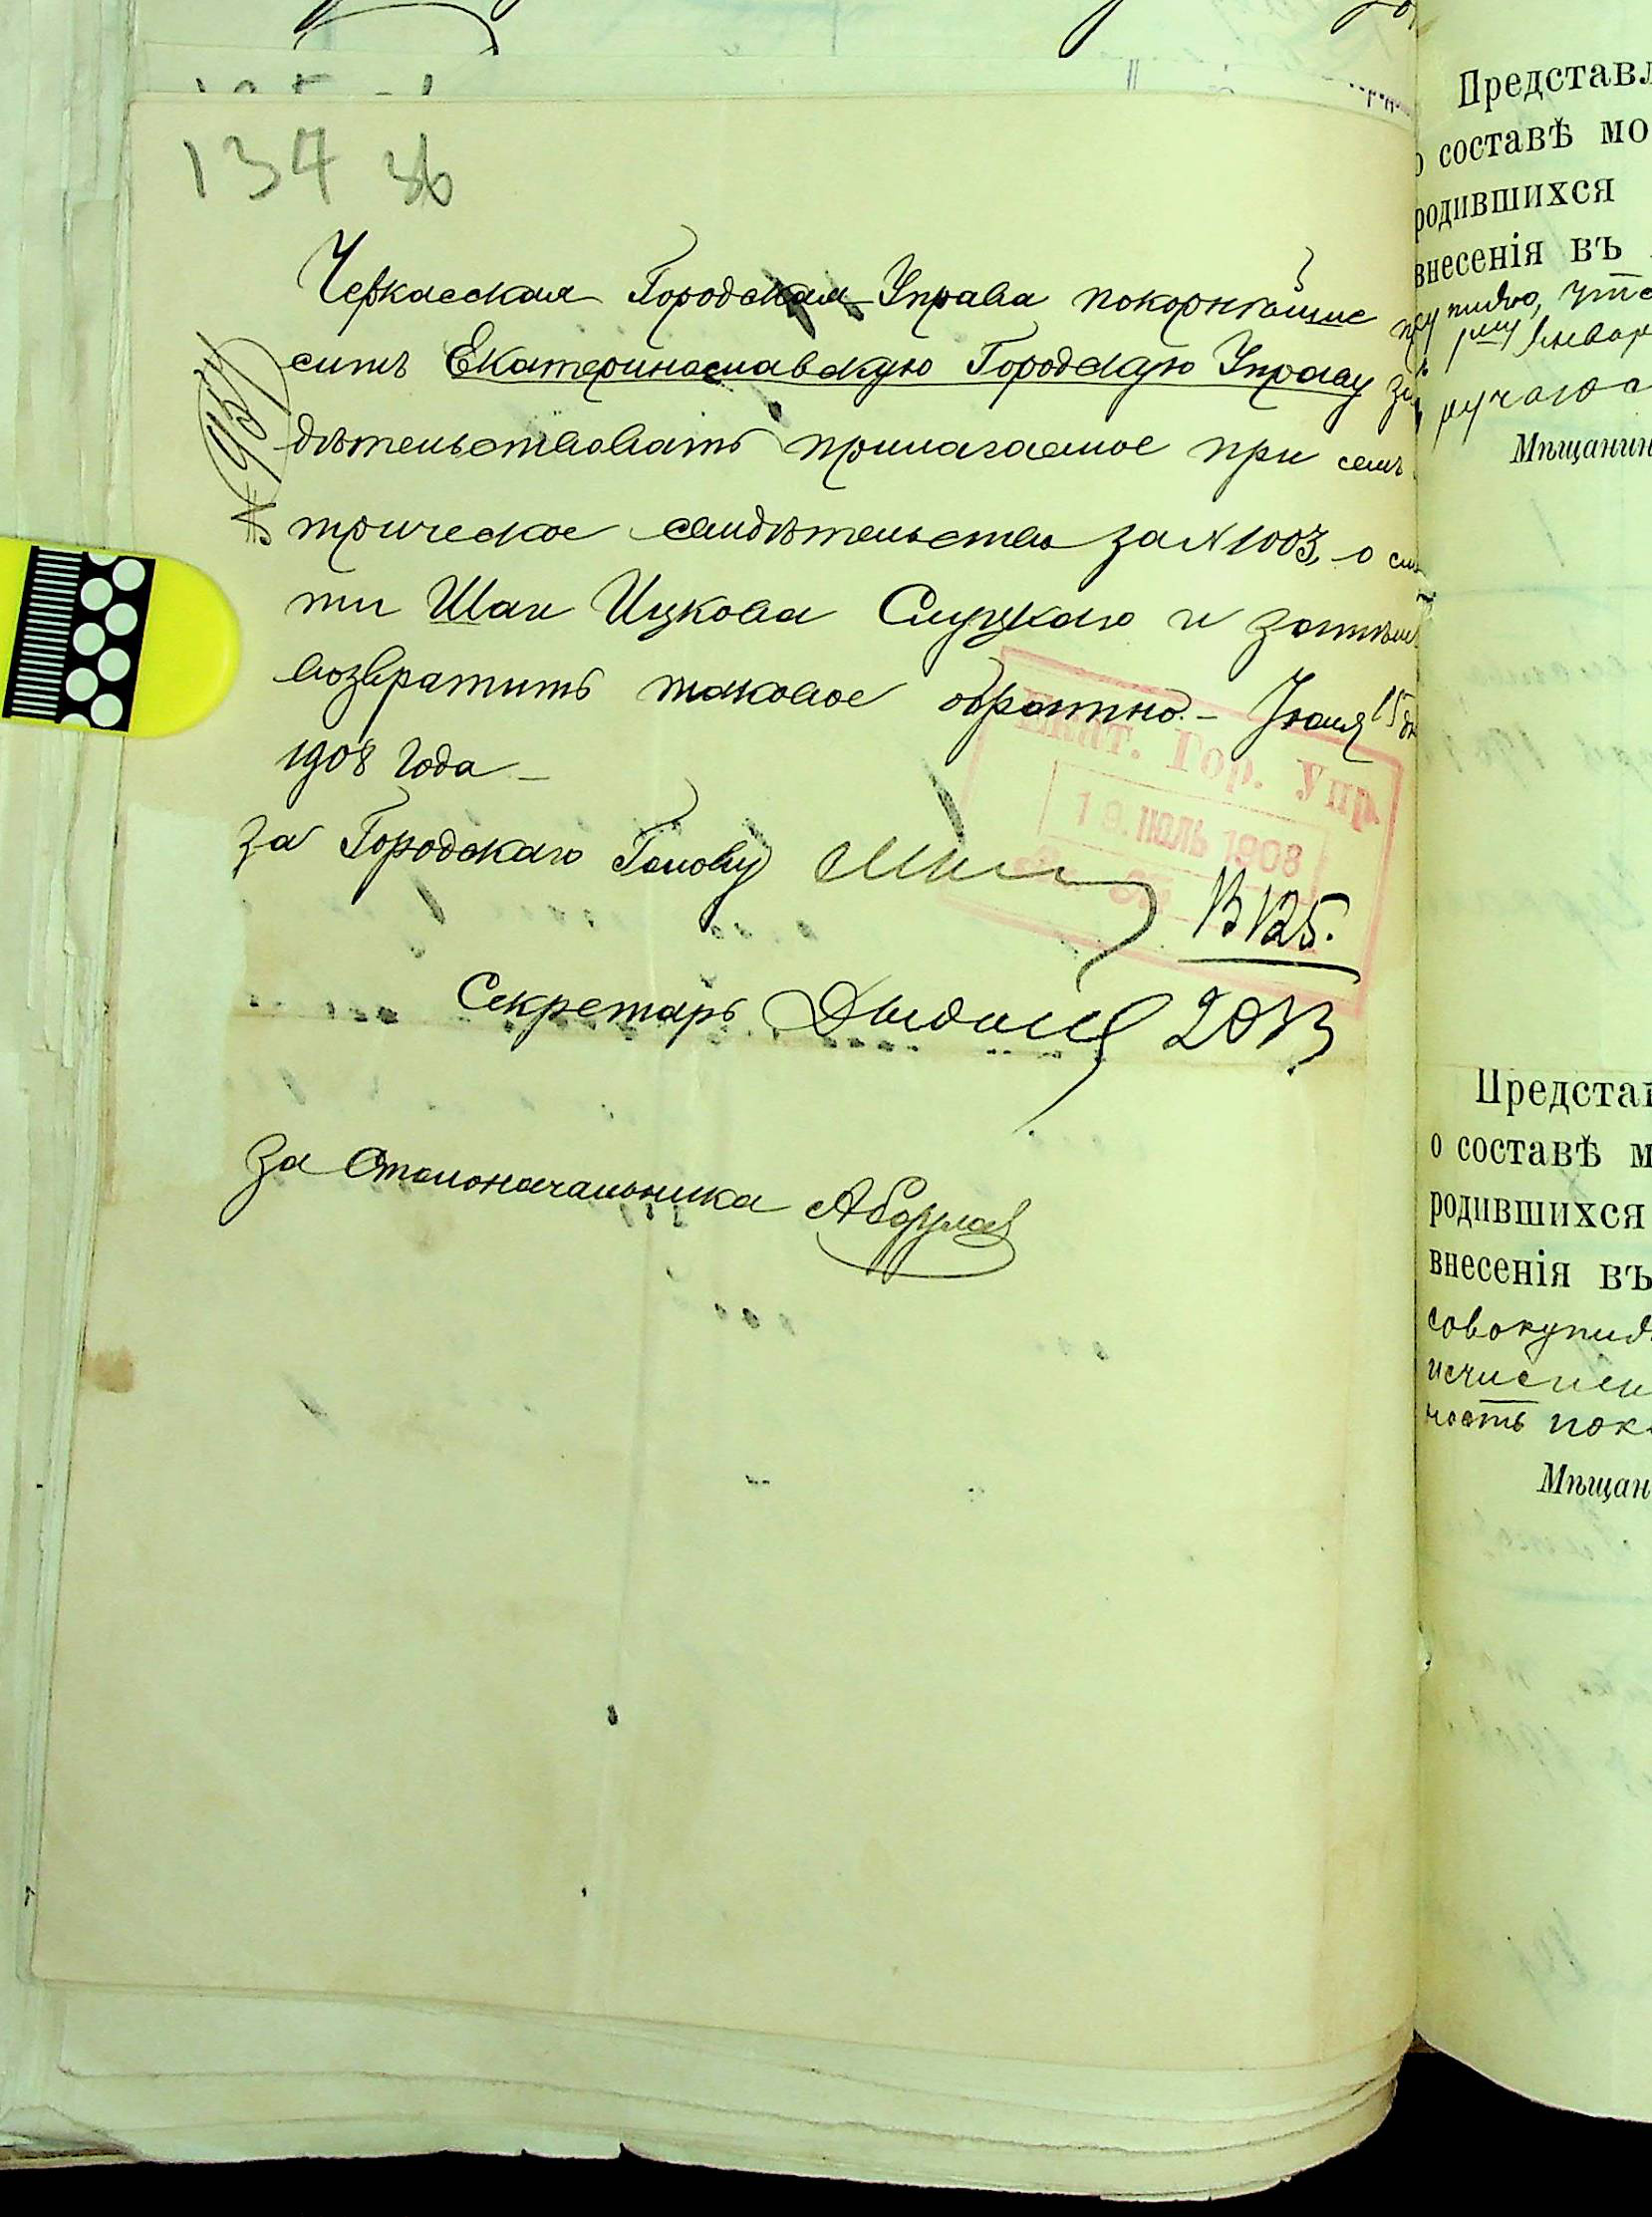 134 зв
Черкасская Городская Управа покорнѣйше
ситъ Екатеринославскую Городскую Управу за
дѣтельствовать прилагаемое при семъ
трическое свидѣтельство за № 1003, о см
ти Шаи Ицкова Слуцкаго и затѣм
возвратить таковое обратно. – Іюля 15 дн
1908 года –
За Городскаго Голову
Екат. Гор. Упр.
19. ІЮЛЬ 1908
13125.
Секретарь
За Столоначальника
Представл
о составѣ мо
родившихся
внесенія въ
что
Январ
ручаюс
Мѣщанин
Предстаı
о составѣ м
родившихся
внесенія въ
совокупи
исчислен
ность пока
Мѣщан